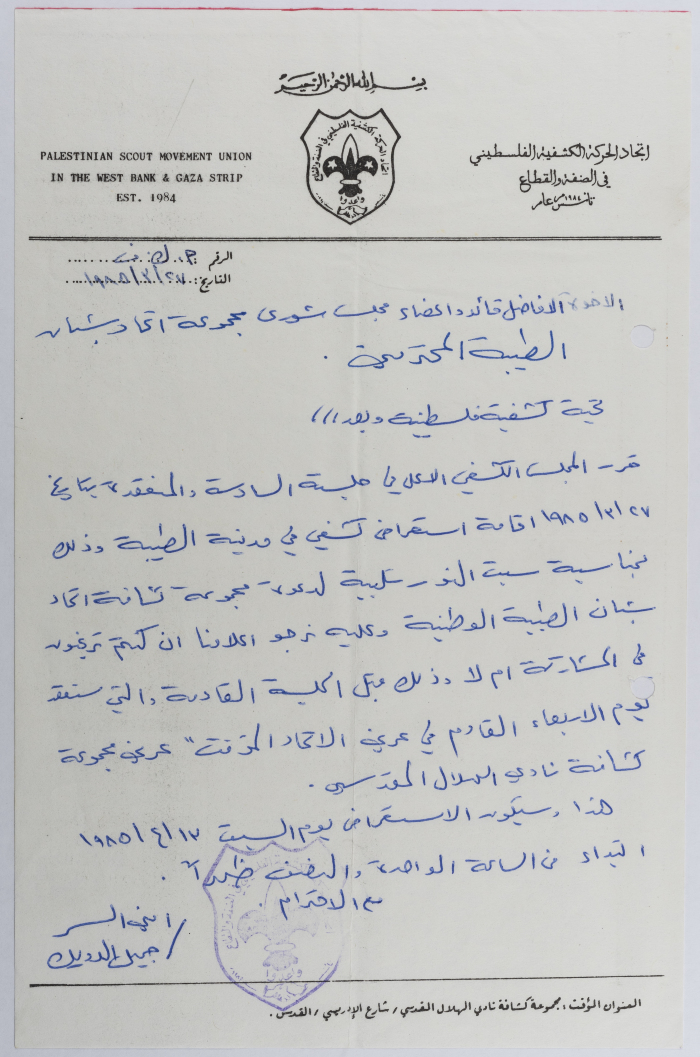 بسم الله الرحمن الرحيم
PALESTINIAN SCOUT MOVEMENT UNION
IN THE WEST BANK & GAZA STRIP
EST. 1984
اتحاد الحركة الكشفية الفلسطيني
في الضفة والقطاع
تأسس عام ١٩٨٤
اتحاد الحركة الكشفية الفلسطيني في الضفة والقطاع
وأعدوا
الرقم :
التاريخ: ١٩٨٥/٣/٢٧
الاخوة الافاضل قائد واعضاء مجلس شورى مجموعة اتحاد شبان
الطيبة المحترمين .
تحية كشفية فلسطينية وبعد ,,,
قرر المجلس الكشفي الاعلى في جلسته السادسة والمنعقدة بتاريخ
١٩٨٥/٣/٢٧ اقامة استعراض كشفي في مدينة الطيبة وذلك
بمناسبة سبت النور تلبية لدعوة مجموعة كشافة اتحاد
شبان الطيبة الوطنية وعليه نرجو اعلامنا ان كنتم ترغبون
في المشاركة ام لا وذلك قبل الجلسة القادمة والتي ستعقد
يوم الاربعاء القادم في عرين الاتحاد المؤقت " عرين مجموعة
كشافة نادي الهلال المقدسي .
هذا وسيكون الاستعراض يوم السبت ١٩٨٥/٤/١٣
ابتداء من الساعة الواحدة والنصف ظهراً .
مع الاحترام .
امين السر
جميل الدويك
العنوان المؤقت : مجموعة كشافة نادي الهلال القدسي / شارع الإدريسي / القدس .